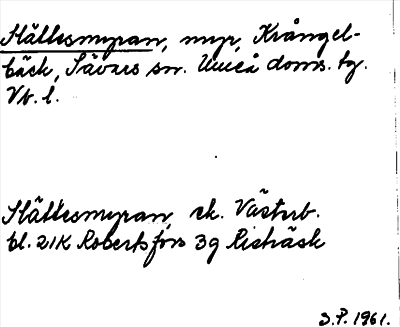 Slättesmyran, myr, Krångel-
bäck, Sävars sn. Umeå doms. tg.
Vb. l.
Slättesmyran, ek. Västerb.
bl. 21K Robertsfors 3g Risträsk
S.P. 1961.